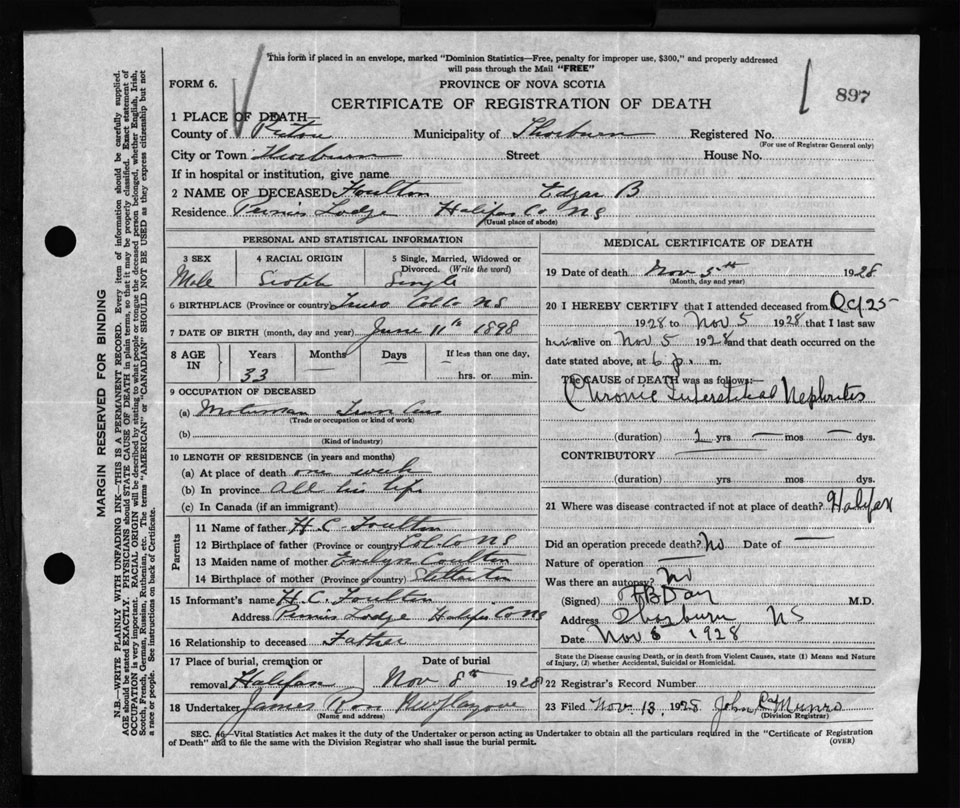 This form if placed in an envelope, marked "Dominion Statistics—Free, penalty for improper use, $300," and properly addressed
will pass through the Mail "FREE"
FORM 6.
PROVINCE OF NOVA SCOTIA
CERTIFICATE OF REGISTRATION OF DEATH
897
1 PLACE OF DEATH
County of Pictou Municipality of Thorburn Registered No.
(For use of Registrar General only)
City or Town Thorburn Street House No.
If in hospital or institution, give name
2 NAME OF DECEASED Foulton Edgar B
Residence Lodge Halifax Co NS
(Usual place of abode)
PERSONAL AND STATISTICAL INFORMATION
3 SEX 4 RACIAL ORIGIN 5 Single, Married, Widowed or
Divorced. (Write the word)
Male Scotch Single
6 BIRTHPLACE (Province or country) Truro Col Co NS
7 DATE OF BIRTH (month, day and year) June 11th 1898
8 AGE IN Years Months Days If less than one day,
33 — hrs. or min.
9 OCCUPATION OF DECEASED
(a) Motorman Tram Cars
(Trade or occupation or kind of work)
(b)
(Kind of industry)
10 LENGTH OF RESIDENCE (in years and months)
(a) At place of death one week
(b) In province All his life
(c) In Canada (if an immigrant)
Parents
11 Name of father H.C. Foulton
12 Birthplace of father (Province or country) Col Co NS
13 Maiden name of mother Evelyn Coulter
14 Birthplace of mother (Province or country)
15 Informant's name H.C. Foulton
Address Lodge Halifax Co NS
16 Relationship to deceased Father
17 Place of burial, cremation or Date of burial
removal Halifax Nov 8th 1928
18 Undertaker James Ross New Glasgow
(Name and address)
MEDICAL CERTIFICATE OF DEATH
19 Date of death Nov 5th 1928
(Month, day and year)
20 I HEREBY CERTIFY that I attended deceased from Oct 25
1928 to Nov 5 1928 that I last saw
him alive on Nov 5 1928 and that death occurred on the
date stated above, at 6 p. m.
The CAUSE of DEATH was as follows:—
Chronic Interstitial Nephritis
(duration) 1 yrs — mos — dys.
CONTRIBUTORY
(duration) yrs mos dys.
21 Where was disease contracted if not at place of death? Halifax
Did an operation precede death? No Date of —
Nature of operation
Was there an autopsy? No
(Signed) F B Day M.D.
Address Thorburn NS
Date Nov 6 1928
State the Disease causing Death, or in death from Violent Causes, state (1) Means and Nature
of Injury, (2) whether Accidental, Suicidal or Homicidal.
22 Registrar's Record Number
23 Filed Nov. 13, 1928 John Munro
(Division Registrar)
SEC. —Vital Statistics Act makes it the duty of the Undertaker or person acting as Undertaker to obtain all the particulars required in the "Certificate of Registration
of Death" and to file the same with the Division Registrar who shall issue the burial permit.
(OVER)
MARGIN RESERVED FOR BINDING
N.B.—WRITE PLAINLY WITH UNFADING INK—THIS IS A PERMANENT RECORD. Every item of information should be carefully supplied.
AGE should be stated EXACTLY. PHYSICIANS should STATE CAUSE OF DEATH in plain terms, so that it may be properly classified. Exact statement of
OCCUPATION is very important. RACIAL ORIGIN will be described by stating to what people or tongue the deceased person belonged, whether English, Irish,
Scotch, French, German, Russian, Ruthenian, etc. The terms "AMERICAN" or "CANADIAN" SHOULD NOT BE USED as they express citizenship but not
a race or people. See instructions on back of Certificate.